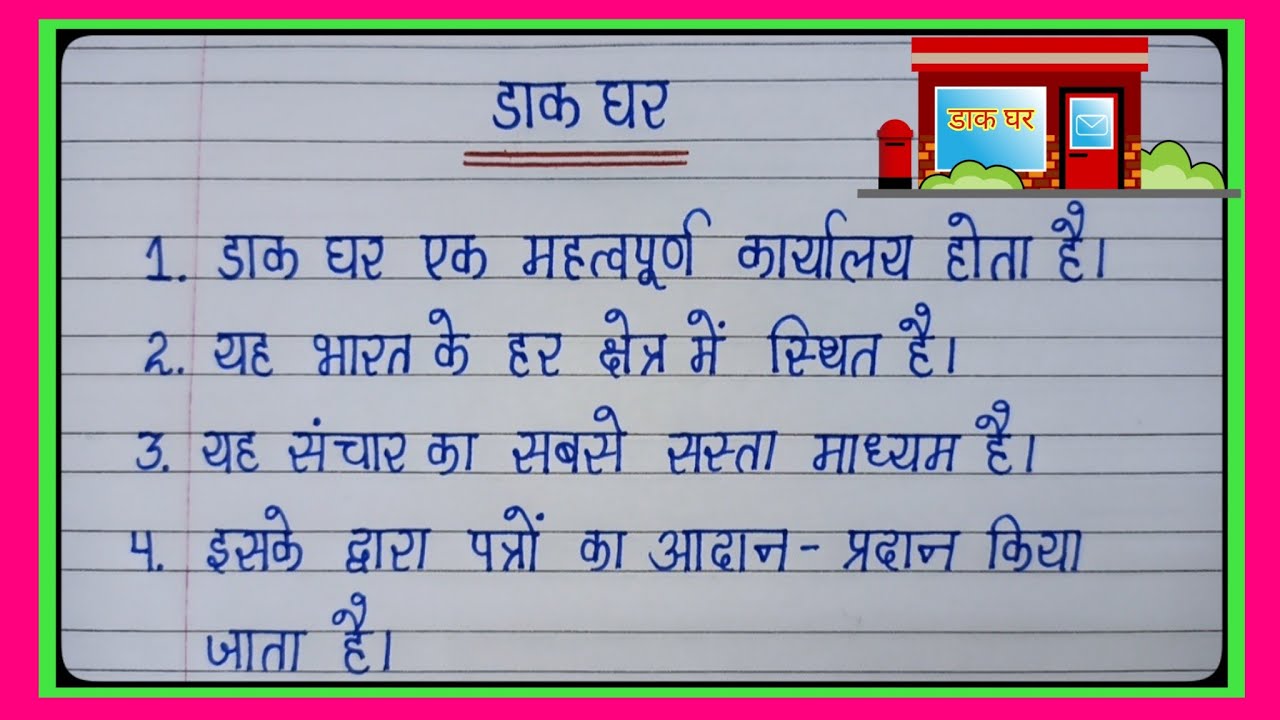 डाक घर
डाक घर
1. डाक घर एक महत्वपूर्ण कार्यालय होता है।
2. यह भारत के हर क्षेत्र में स्थित है।
3. यह संचार का सबसे सस्ता माध्यम है।
4. इसके द्वारा पत्रों का आदान-प्रदान किया
जाता है।